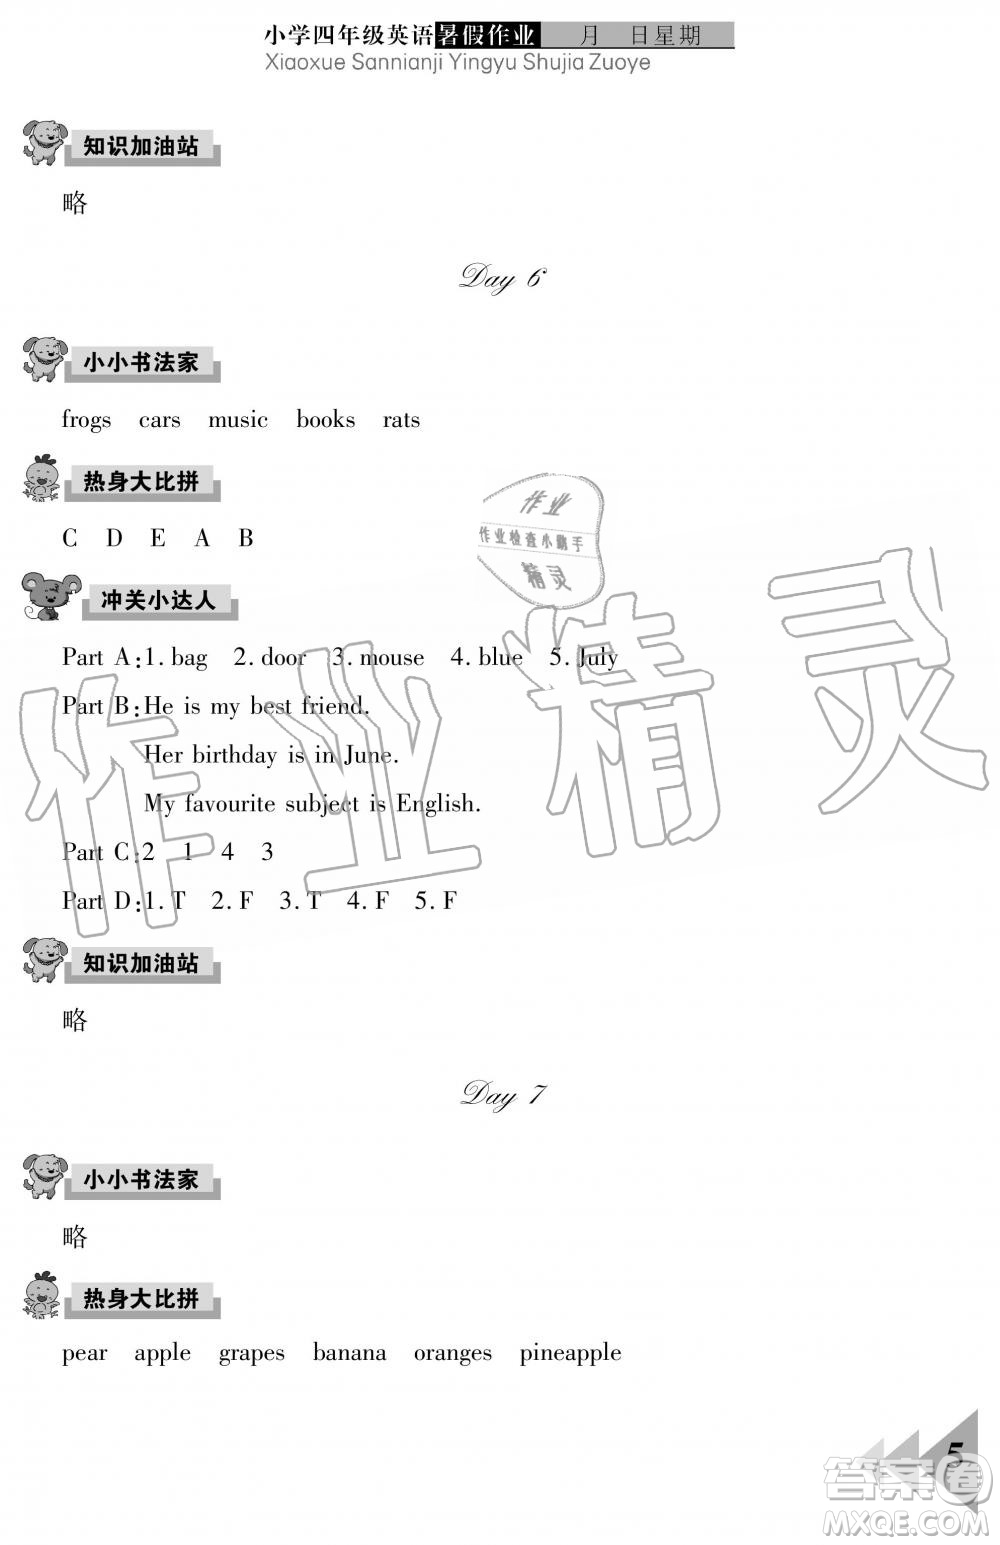 小学四年级英语暑假作业 月 日星期
Xiaoxue Sannianji Yingyu Shujia Zuoye
知识加油站
略
Day 6
小小书法家
frogs cars music books rats
热身大比拼
C D E A B
作业
作业检查小助手
精灵
冲关小达人
Part A:1. bag 2. door 3. mouse 4. blue 5. July
Part B:He is my best friend.
Her birthday is in June.
My favourite subject is English.
Part C:2 1 4 3
Part D:1. T 2. F 3. T 4. F 5. F
作业精灵
知识加油站
略
Day 7
小小书法家
略
热身大比拼
pear apple grapes banana oranges pineapple
5
答案圈
MXQE.COM